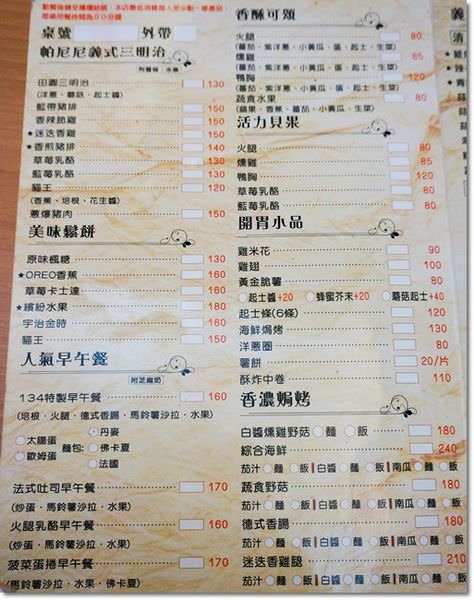 點餐後請至櫃檯結帳，本店最低消費每人至少點一樣產品，
每桌用餐時間為90分鐘
桌號 外帶
帕尼尼義式三明治
附薯條．水果
田園三明治 130
(洋蔥、蘑菇、起士醬)
藍帶豬排 150
香辣脆雞 150
★迷迭香雞 150
★香煎豬排 140
草莓乳酪 130
藍莓乳酪 130
貓王 120
(香蕉、培根、花生醬)
蔥爆豬肉 150
美味鬆餅
原味楓糖 130
★OREO香蕉 160
草莓卡士達 160
★繽紛水果 180
宇治金時 160
貓王 150
人氣早午餐
附芝麻奶
134特製早午餐 160
(培根．火腿．德式香腸．馬鈴薯沙拉．水果)
太陽蛋
歐姆蛋
麵包:
丹麥
佛卡夏
法國
法式吐司早午餐 170
(炒蛋．馬鈴薯沙拉．水果)
火腿乳酪早午餐 160
(炒蛋．馬鈴薯沙拉．水果)
菠菜蛋捲早午餐 170
(馬鈴薯沙拉．水果．佛卡夏)
香酥可頌
火腿 80
(蕃茄、紫洋蔥、小黃瓜、蛋、起士、生菜)
燻雞 85
(蕃茄、紫洋蔥、小黃瓜、蛋、起士、生菜)
鴨胸 120
(蕃茄、紫洋蔥、小黃瓜、蛋、起士、生菜)
蔬食水果 80
(蘋果、香蕉、蕃茄、小黃瓜、生菜)
活力貝果
火腿 80
燻雞 85
鴨胸 120
草莓乳酪 80
藍莓乳酪 80
開胃小品
雞米花 90
雞翅 100
黃金脆薯 80
起士醬+20 蜂蜜芥末+20 蘑菇起士+40
起士條(6條) 120
海鮮焗烤 130
洋蔥圈 80
薯餅 20/片
酥炸中卷 110
香濃焗烤
白醬燻雞野菇 麵 飯 180
綜合海鮮 240
茄汁 麵 飯 | 白醬 麵 飯 | 南瓜 麵 飯
蔬食野菇 180
茄汁 麵 飯 | 白醬 麵 飯 | 南瓜 麵 飯
德式香腸 180
茄汁 麵 飯 | 白醬 麵 飯 | 南瓜 麵 飯
迷迭香雞腿 210
茄汁 麵 飯 | 白醬 麵 飯 | 南瓜 麵 飯
義